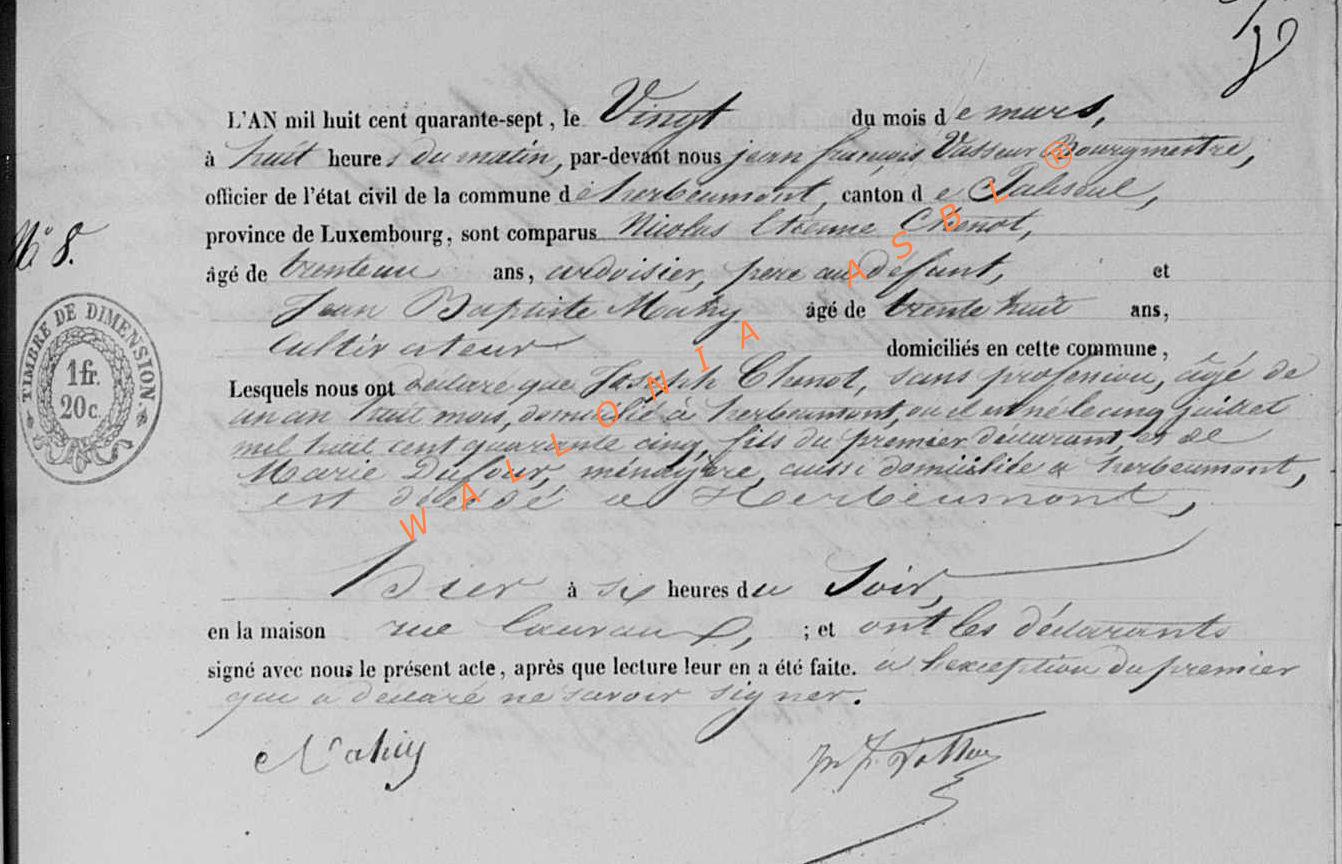 L'AN mil huit cent quarante-sept, le Vingt du mois de mars,
à huit heures du matin, par-devant nous jean françois Vasseur Bourgmestre,
officier de l'état civil de la commune de herbeumont, canton de
province de Luxembourg, sont comparus Nicolas Etienne Chenot,
N° 8.
âgé de trenteun ans, ardoisier, pere au défunt, et
Jean Baptiste Mahy âgé de trente huit ans,
Cultivateur domiciliés en cette commune,
TIMBRE DE DIMENSION
1 fr.
20 c.
Lesquels nous ont déclaré que Joseph Chenot, sans profession, âgé de
un an huit mois, domicilié à herbeumont, ou il est né le cinq juillet
mil huit cent quarante cinq, fils du premier déclarant et de
Marie Dufour, ménagère, aussi domiciliée a herbeumont,
est décédé a Herbeumont,
hier à six heures du Soir,
en la maison rue ; et ont les déclarants
signé avec nous le présent acte, après que lecture leur en a été faite. a l'exception du premier
qui a declaré ne savoir signer.
Mahy
WALLONIA ASBL ®